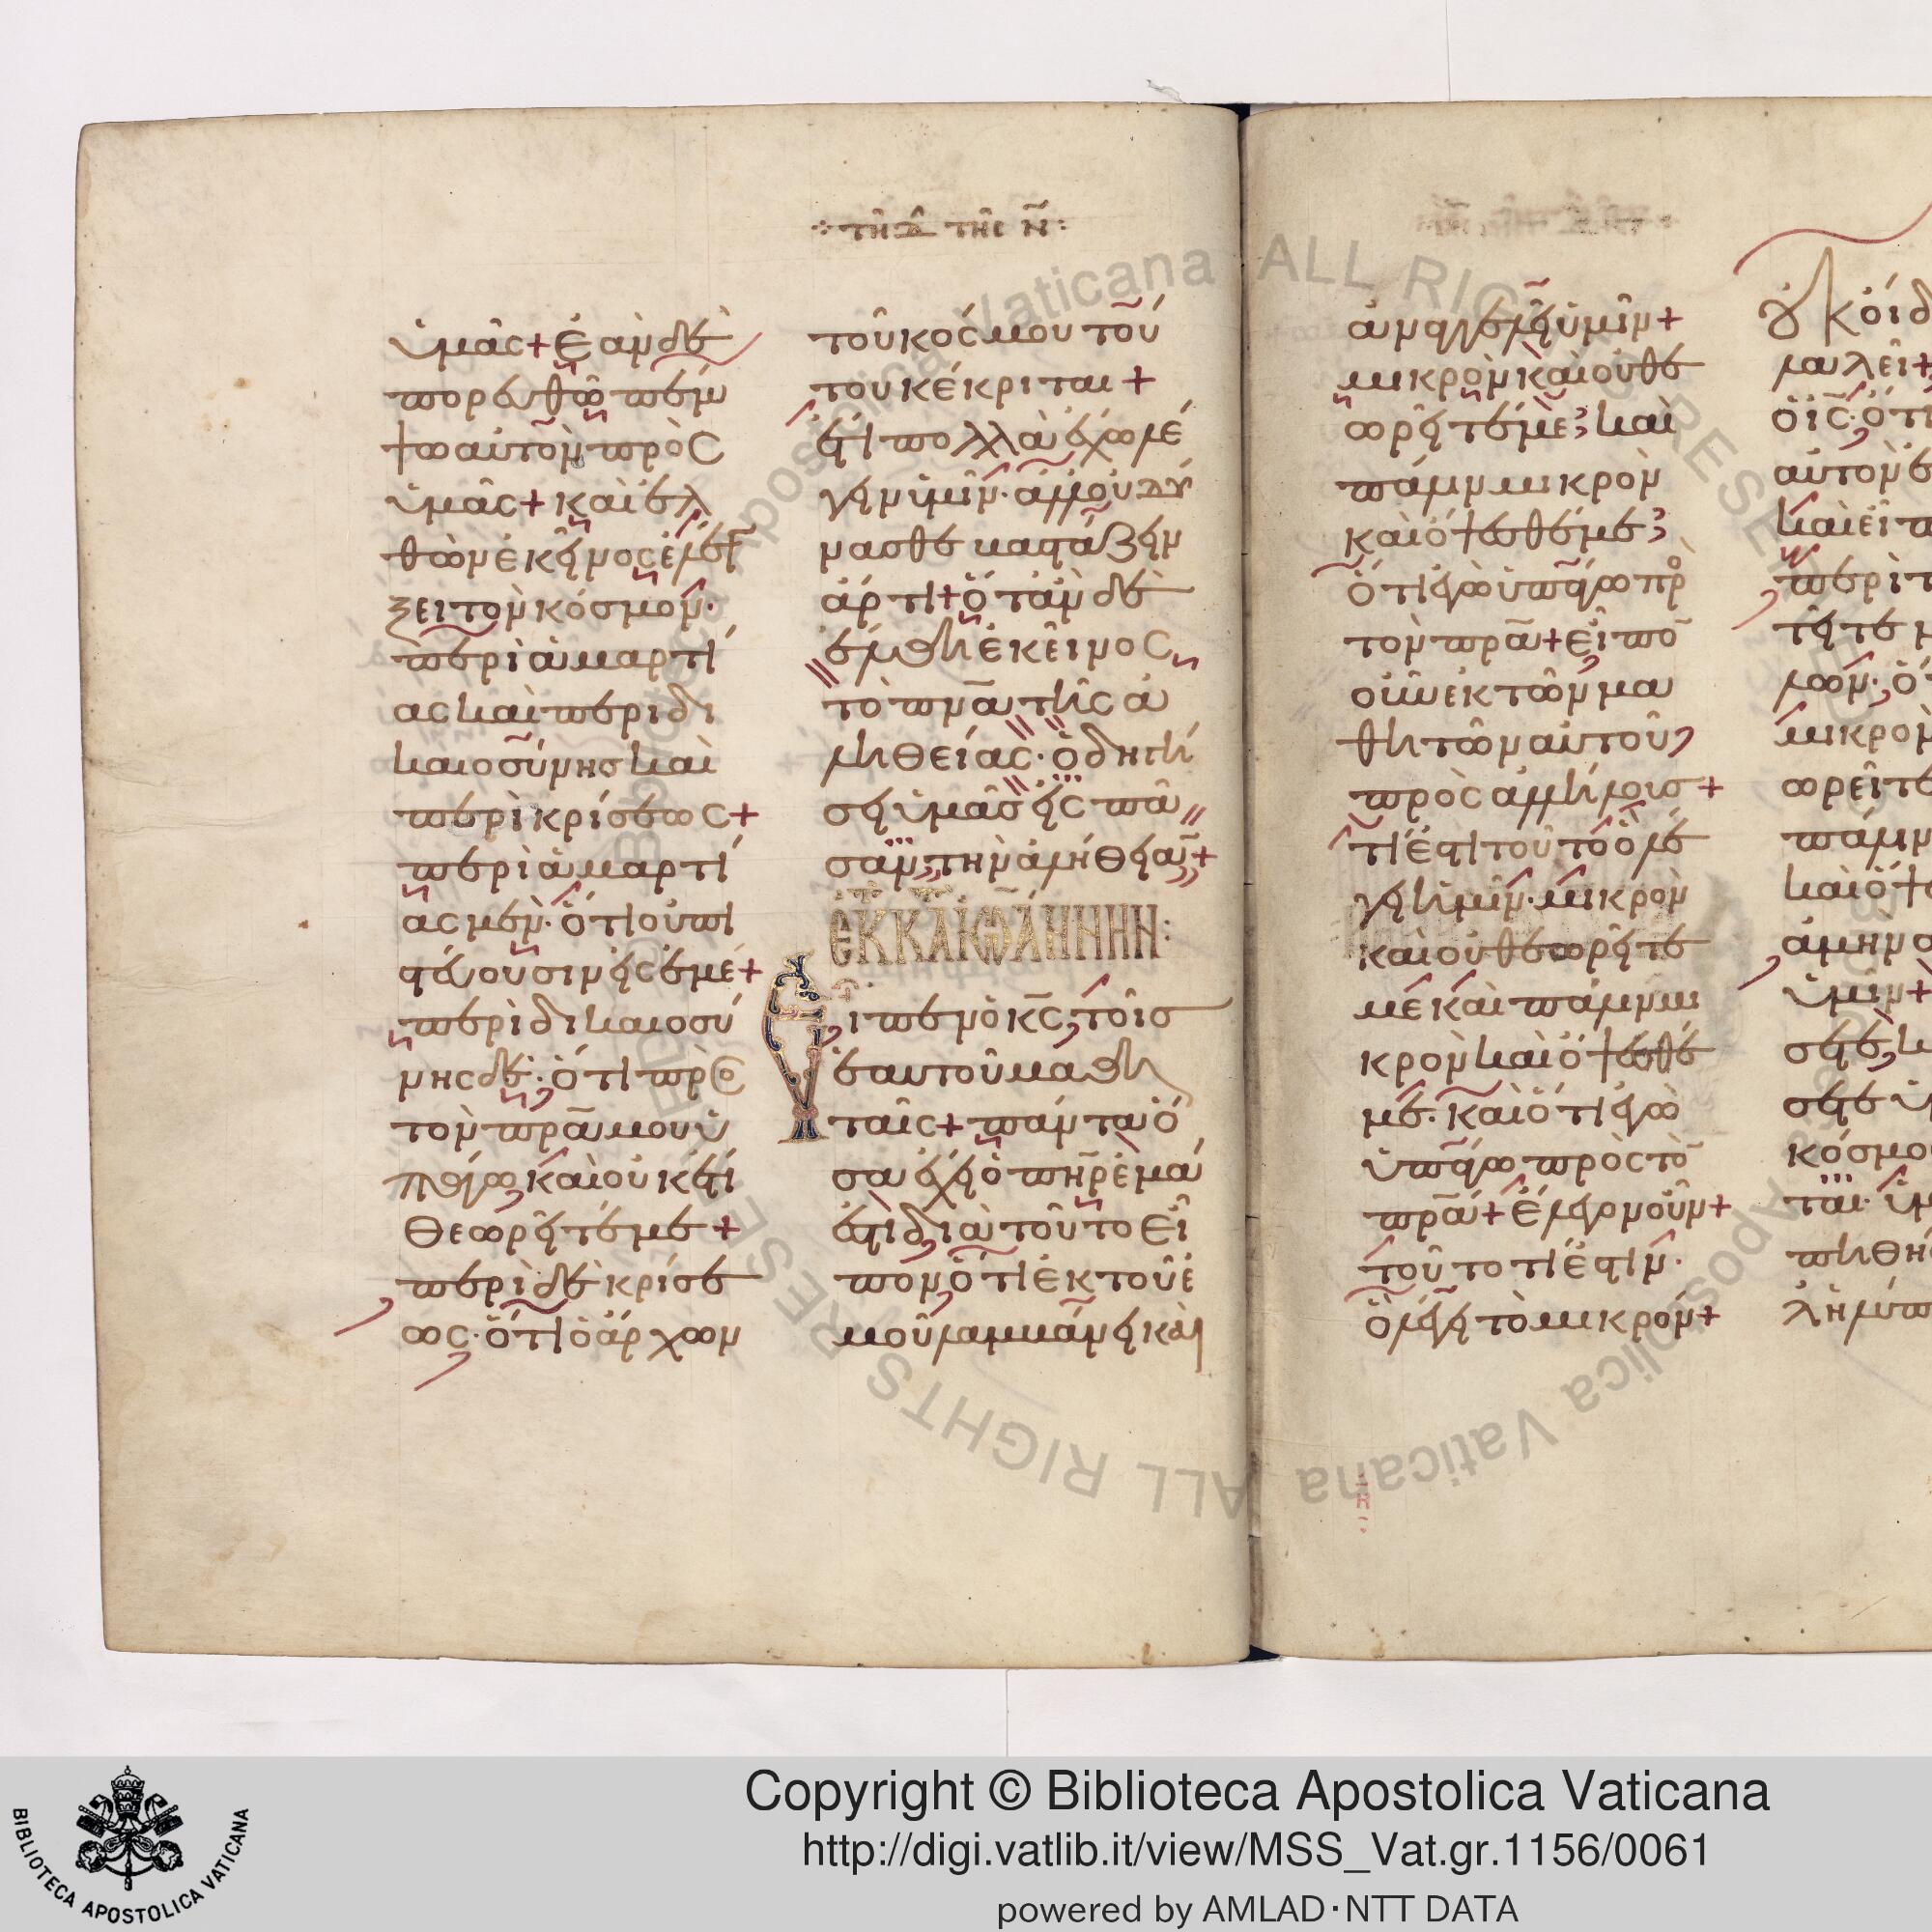 τῆ δ τῆς ν̄:
ὑμᾶς + ἐὰν δὲ
πορευθῶ πέμ
ψω αὐτὸν πρὸς
ὑμᾶς + καὶ ἐλ
θὼν ἐκεῖνος ἐλέγ
ξει τὸν κόσμον·
περὶ ἁμαρτί
ας καὶ περὶ δι
καιοσύνης καὶ
περὶ κρίσεως +
περὶ ἁμαρτί
ας μέν· ὅτι οὐ πι
στεύουσιν εἰς ἐμέ +
περὶ δικαιοσύ
νης δέ· ὅτι πρὸς
τὸν πρ̄α μου ὑ
πάγω καὶ οὐκέτι
θεωρεῖτέ με +
περὶ δὲ κρίσε
ως· ὅτι ὁ ἄρχων
τοῦ κόσμου τού
του κέκριται +
ἔτι πολλὰ ἔχω λέ
γειν ὑμῖν· ἀλλ' οὐ δύ
νασθε βαστάζειν
ἄρτι + ὅταν δὲ
ἔλθη ἐκεῖνος
τὸ πν̄α τῆς ἀ
ληθείας· ὁδηγή
σει ὑμᾶς εἰς πᾶ
σαν τὴν ἀλήθειαν +
ἐκ κα ἰωάννην:
Εἶπεν ὁ κ̄ς, τοῖς
ἑαυτοῦ μαθη
ταῖς + πάντα ὅ
σα ἔχει ὁ πη̄ρ ἐμά
ἐστι διὰ τοῦτο εἶ
πον ὅτι ἐκ τοῦ ἐ
μοῦ λαμβάνει καὶ
ἀναγγελεῖ ὑμῖν +
μικρὸν καὶ οὐ θε
ωρεῖτέ με; καὶ
πάλιν μικρὸν
καὶ ὄψεσθέ με;
ὅτι ἐγὼ ὑπάγω πρὸ
τὸν πρ̄α + εἶπο̄
οὖν ἐκ τῶν μα
θητῶν αὐτοῦ,
πρὸς ἀλλήλους +
τί ἐστι τοῦτο ὃ λέ
γει ἡμῖν· μικρὸν
καὶ οὐ θεωρεῖτέ
με καὶ πάλιν μι
κρὸν καὶ ὄψεσθέ
με· καὶ ὅτι ἐγὼ
ὑπάγω πρὸς τὸ̄
πρ̄α + ἔλεγον οὖν +
τοῦτο τί ἐστιν·
ὃ λέγει τὸ μικρόν +
οὐκ οἴδ
λαλεῖ +
ὁ ἰ̄ς· ὅτι
αὐτὸν ἐ
καὶ εἶπ
περὶ τ
τεῖτε μ
λων· ὅ
μικρὸν
ωρεῖτέ
πάλιν
καὶ ὄψ
ἀμὴν ἀ
ὑμῖν +
σετε, κ
σετε ὑ
κόσμο
ται· ὑμ
πηθή
λὴ λύπ
Copyright © Biblioteca Apostolica Vaticana
http://digi.vatlib.it/view/MSS_Vat.gr.1156/0061
powered by AMLAD·NTT DATA
BIBLIOTECA APOSTOLICA VATICANA